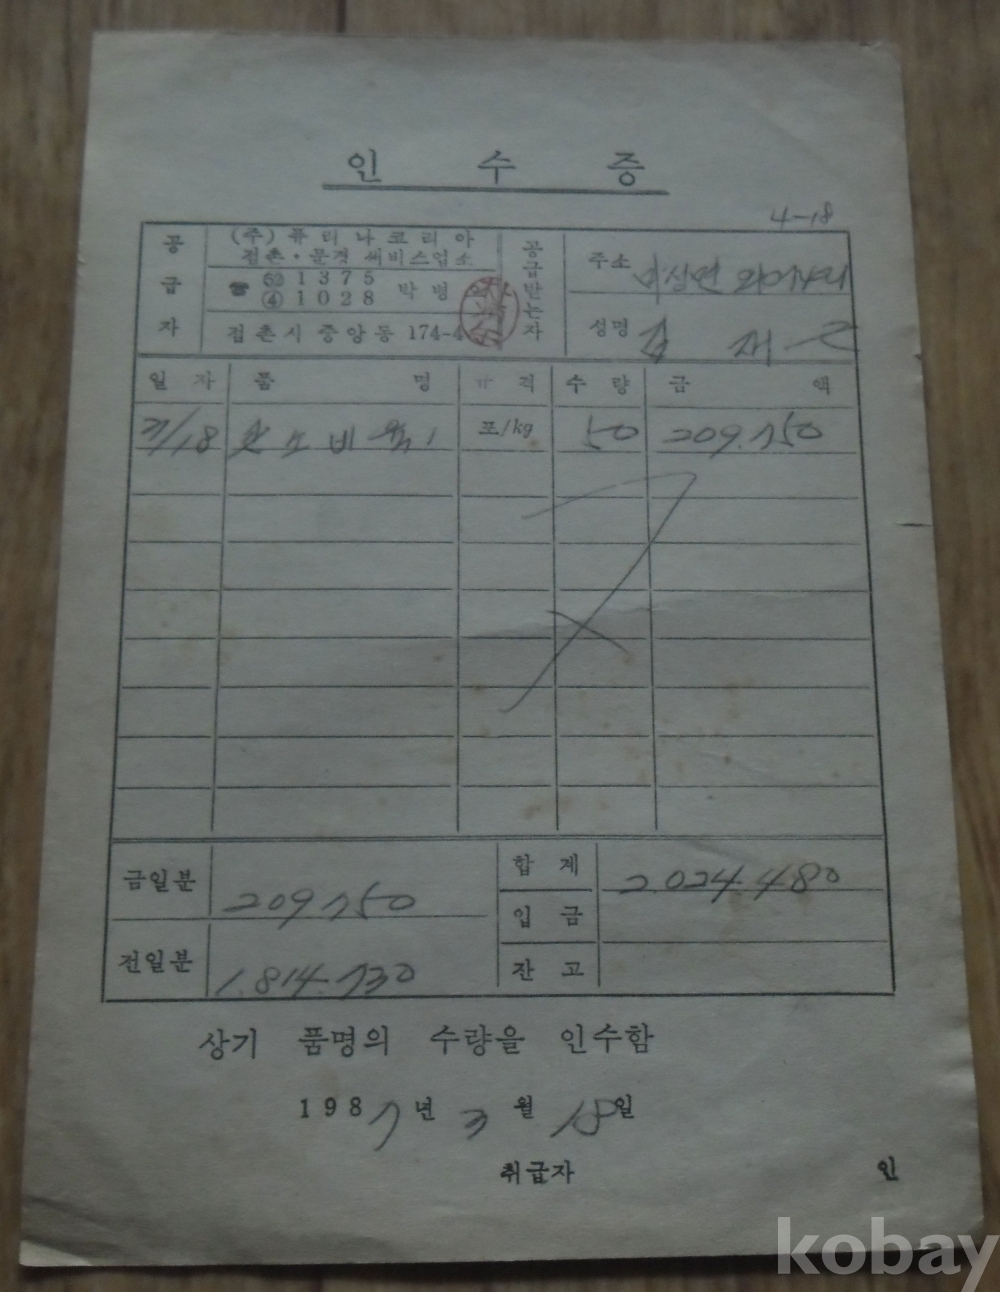 인 수 증
4-18
공급자
(주) 퓨리나코리아
점촌·문경 써비스업소
☎ 62 1375
④ 1028 박병
점촌시 중앙동 174-4
공급받는자
주소
성명 김 재
일 자 품 명 규 격 수 량 금 액
3/18 한소비육 포/kg 50 209.750
금일분 209.750
합 계 2.024.480
입 금
전일분 1.814.730
잔 고
상기 품명의 수량을 인수함
1987년 3월 18일
취급자 인
kobay